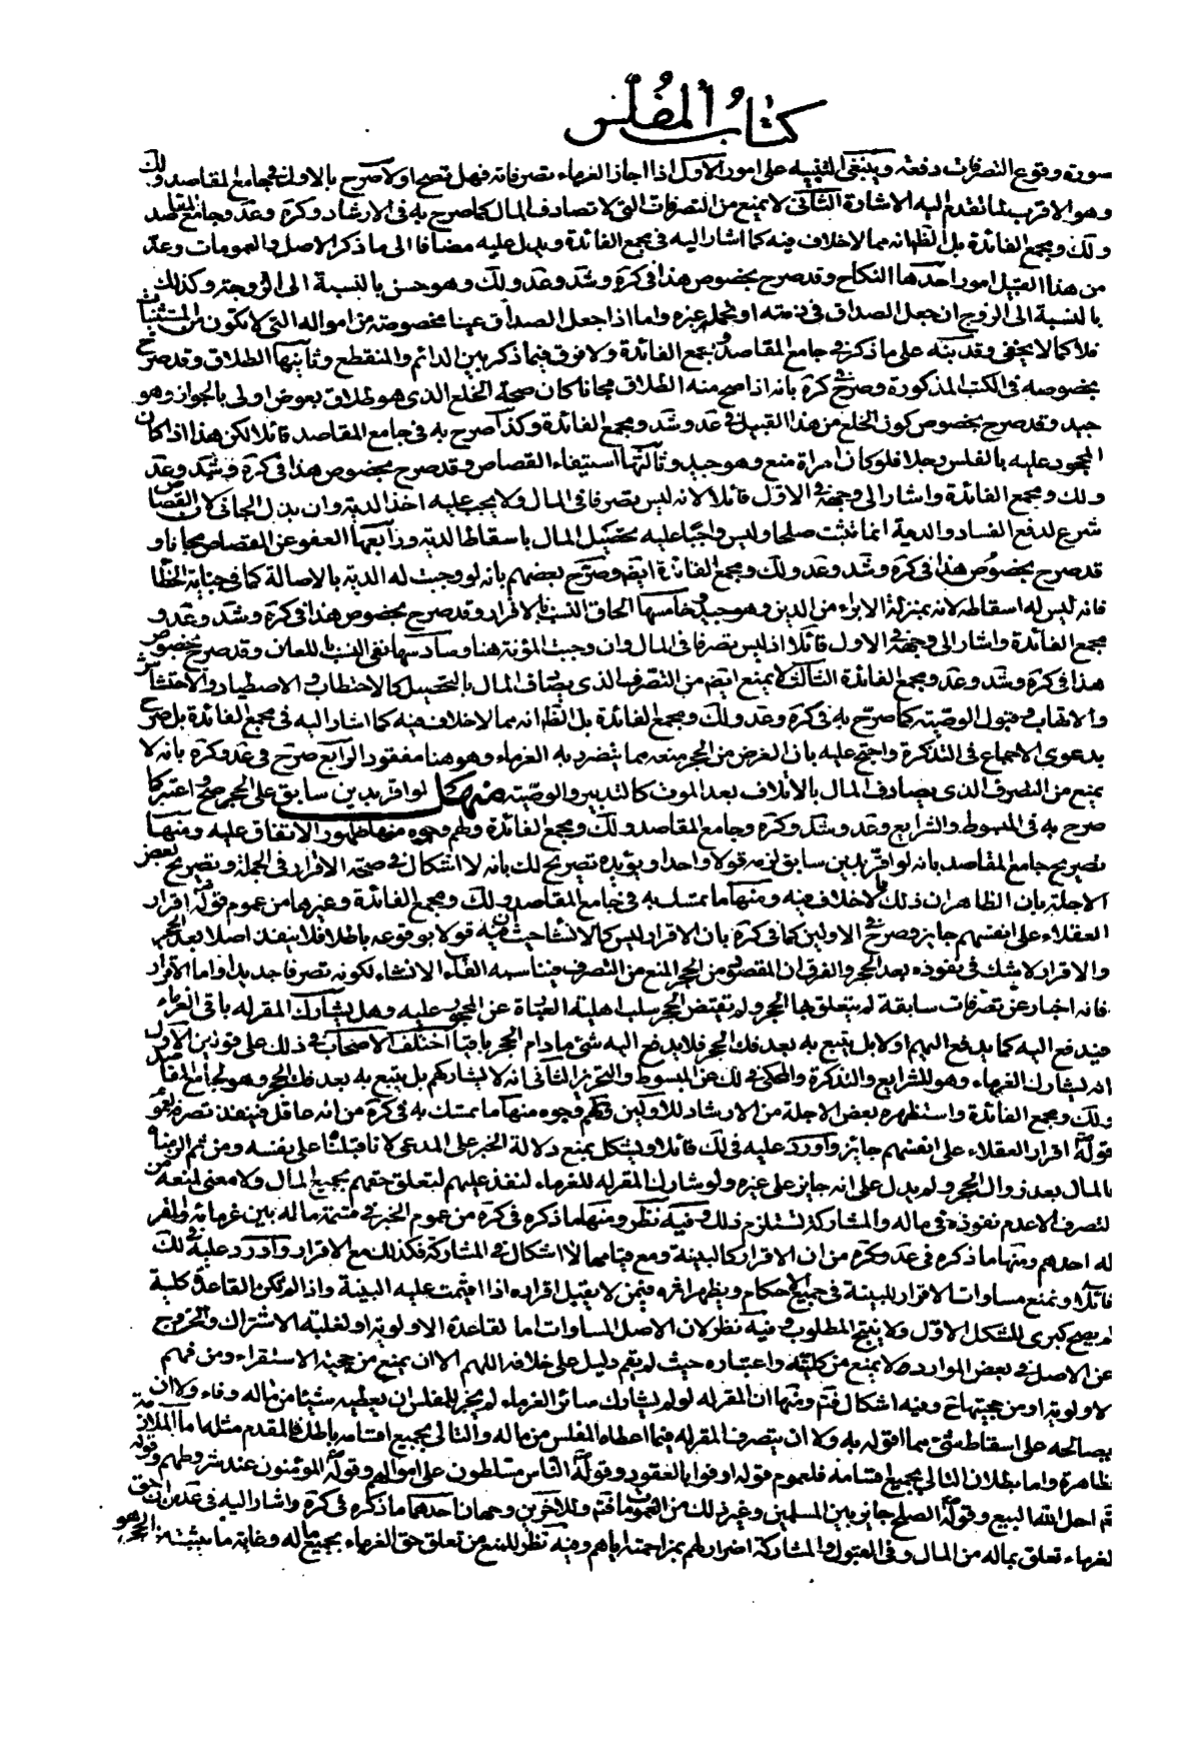 كتاب المفلس
صورة وقوع التصرفات دفعة وينبغى التنبيه على امور الاول اذا اجاز الغرماء تصرفاته فهل تصح اولا صرح بالاول فى جامع المقاصد ولك
وهو الاقرب لما تقدم اليه الاشارة الثانى لا يمنع من التصرفات التى لا تصادف المال كما صرح به فى الارشاد وكرة وعد وجامع المقاصد
ولك ومجمع الفائدة بل الظ انه مما لا خلاف فيه كما اشار اليه فى مجمع الفائدة ويدل عليه مضافا الى ما ذكر الاصل والعمومات وعد
من هذا القبيل امور احدها النكاح وقد صرح بخصوص هذا فى كرة وشد وعد ولك وهو حسن بالنسبة الى الزوجة وكذلك
بالنسبة الى الزوج ان جعل الصداق فى ذمته او تحمله غيره واما اذا جعل الصداق عينا مخصوصة من امواله التى لا تكون من المستثنيات
فلا كما لا يخفى وقد نبه على ما ذكر فى جامع المقاصد ومجمع الفائدة ولا فرق فيما ذكر بين الدائم والمنقطع وثانيها الطلاق وقد صرح
بخصوصه فى الكتب المذكورة وصرح فى كرة بانه اذا صح منه الطلاق مجانا كان صحة الخلع الذى هو طلاق بعوض اولى بالجواز وهو
جيد وقد صرح بخصوص كون الخلع من هذا القبيل فى عد وشد ومجمع الفائدة وكذا صرح به فى جامع المقاصد قائلا لكن هذا اذا كان
المحجور عليه بالفلس رجلا فلو كان امراة منع وهو جيد وثالثها استيفاء القصاص وقد صرح بخصوص هذا فى كرة وشد وعد
ولك ومجمع الفائدة واشار الى وجهه فى الاول قائلا لانه ليس بتصرف فى المال ولا يجب عليه اخذ الدية وان بذل الجانى لان القصاص
شرع لدفع الفساد والدية انما تثبت صلحا وليس واجبا عليه تحصيل المال باسقاط الدية ورابعها العفو عن القصاص مجانا و
قد صرح بخصوص هذا فى كرة وشد وعد ولك ومجمع الفائدة ايضم وصرح بعضهم بانه لو وجبت له الدية بالاصالة كما فى جناية الخطا
فانه ليس له اسقاطه لانه بمنزلة الابراء من الدين وهو جيد وخامسها الحاق النسب بالاقرار وقد صرح بخصوص هذا فى كرة وشد وعد و
مجمع الفائدة واشار الى وجهه فى الاول قائلا اذ ليس تصرفا فى المال وان وجبت المؤنة هنا وسادسها نفى النسب باللعان وقد صرح بخصوص
هذا فى كرة وشد وعد ومجمع الفائدة الثالث لا يمنع ايضم من التصرف الذى يصادف المال بالتحصيل كالاحتطاب والاصطياد والاحتشاش
والاتهاب وقبول الوصية كما صرح به فى كرة وعد ولك ومجمع الفائدة بل الظ انه مما لا خلاف فيه كما اشار اليه فى مجمع الفائدة بل صرح
بدعوى الاجماع فى التذكرة واحتج عليه بان الغرض من الحجر منعه مما يتضرر به الغرماء وهو هنا مفقود الرابع صرح فى عد وكرة بانه لا
يمنع من التصرف الذى يصادف المال بالاتلاف بعد الموت كالتدبير والوصية منهل لو اقر بدين سابق على الحجر صح واعتبر كما
صرح به فى المبسوط والشرايع وعد وشد وكرة وجامع المقاصد ولك ومجمع الفائدة ولهم وجوه منها ظهور الاتفاق عليه ومنها
تصريح جامع المقاصد بانه لو اقر بدين سابق لزمه قولا واحدا ويؤيده تصريح لك بانه لا اشكال فى صحة الاقرار فى الجملة وتصريح بعض
الاجلة بان الظاهر ان ذلك مما لا خلاف فيه ومنها ما تمسك به فى جامع المقاصد ولك ومجمع الفائدة وغيرها من عموم قوله اقرار
العقلاء على انفسهم جايز وصرح فى الاولين كما فى كرة بان الاقرار ليس كالانشاء حيث ان فيه قولا بوقوعه باطلا فلا ينفذ اصلا بعد الحجر
والاقرار لا شك فى نفوذه بعد الحجر والفرق ان المقصود من الحجر المنع من التصرف فيناسبه الغاء الانشاء لكونه تصرفا جديدا واما الاقرار
فانه اخبار عن تصرفات سابقة لم يتعلق بها الحجر ولم يقتض الحجر سلب اهلية العبارة عن المحجور عليه وهل يشارك المقر له باقى الغرماء
فيدفع اليه كما يدفع اليهم اولا بل يتبع به بعد فك الحجر فلا يدفع اليه شئ ما دام الحجر باقيا اختلف الاصحاب فى ذلك على قولين الاول
انه يشارك الغرماء وهو للشرايع والتذكرة والمحكى فى لك عن المبسوط والتحرير الثانى انه لا يشاركهم بل يتبع به بعد فك الحجر وهو لجامع المقاصد
ولك ومجمع الفائدة واستظهره بعض الاجلة من الارشاد للاولين وجوه منها ما تمسك به فى كرة من انه عاقل فينفذ تصرفه لعموم
قوله اقرار العقلاء على انفسهم جايز واورد عليه فى لك قائلا ويشكل بمنع دلالة الخبر على المدعى لانا قبلنا على نفسه ومن ثم الزمناه
بالمال بعد زوال الحجر ولم يدل على انه جايز على غيره ولو شارك المقر له للغرماء لنفذ عليهم لتعلق حقهم بجميع المال ولا معنى لمنعه من
لتصرف الا عدم نفوذه فى ماله والمشاركة تستلزم ذلك وفيه نظر ومنها ما ذكره فى كرة من عموم الخبر فى قسمة ماله بين غرمائه والمقر
له احدهم ومنها ما ذكره فى عد وكرة من ان الاقرار كالبينة ومع قيامها لا اشكال فى المشاركة فكذلك مع الاقرار واورد عليه فى لك
قائلا ونمنع مساوات الاقرار للبينة فى جميع الاحكام ويظهر اثره فيمن لا يقبل اقراره اذا اقيمت عليه البينة واذا لم تكن القاعدة كلية
لم يصح كبرى للشكل الاول ولا ينتج المطلوب وفيه نظر لان الاصل المساوات اما لقاعدة الاولوية او لغلبة الاشتراك والخروج
عن الاصل فى بعض الموارد لا يمنع من كليته واعتباره حيث لم يقم دليل على خلافه اللهم الا ان يمنع من حجية الاستقراء ومن فهم
لاولوية او من حجيتها وفيه اشكال فتم ومنها ان المقر له لو لم يشارك سائر الغرماء لم يجز للمفلس ان يعطيه شيئا من ماله وفاء ولا ان
يصالحه على اسقاط شئ مما اقر له به ولا ان يتصرف المقر له فيما اعطاه المفلس من ماله والتالى بجميع اقسامه باطل فالمقدم مثله اما الملازمة
ظاهرة واما بطلان التالى بجميع اقسامه فلعموم قوله اوفوا بالعقود وقوله الناس مسلطون على اموالهم وقوله المؤمنون عند شروطهم وقوله
تم احل الله البيع وقوله الصلح جايز بين المسلمين وغير ذلك من العمومات فتم وللاخرين وجهان احدهما ما ذكره فى كرة واشار اليه فى عد من ان حق
لغرماء تعلق بماله من المال وفى القبول والمشاركة اضرار لهم بمزاحمته اياهم وفيه نظر للمنع من تعلق حق الغرماء بجميع ماله وغاية ما يثبته الحجر هو